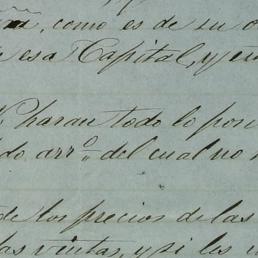 , como es de su
esa Capital, y en
haran todo lo posi
do arrº del cual no
de los precios de las
las ventas, y si les